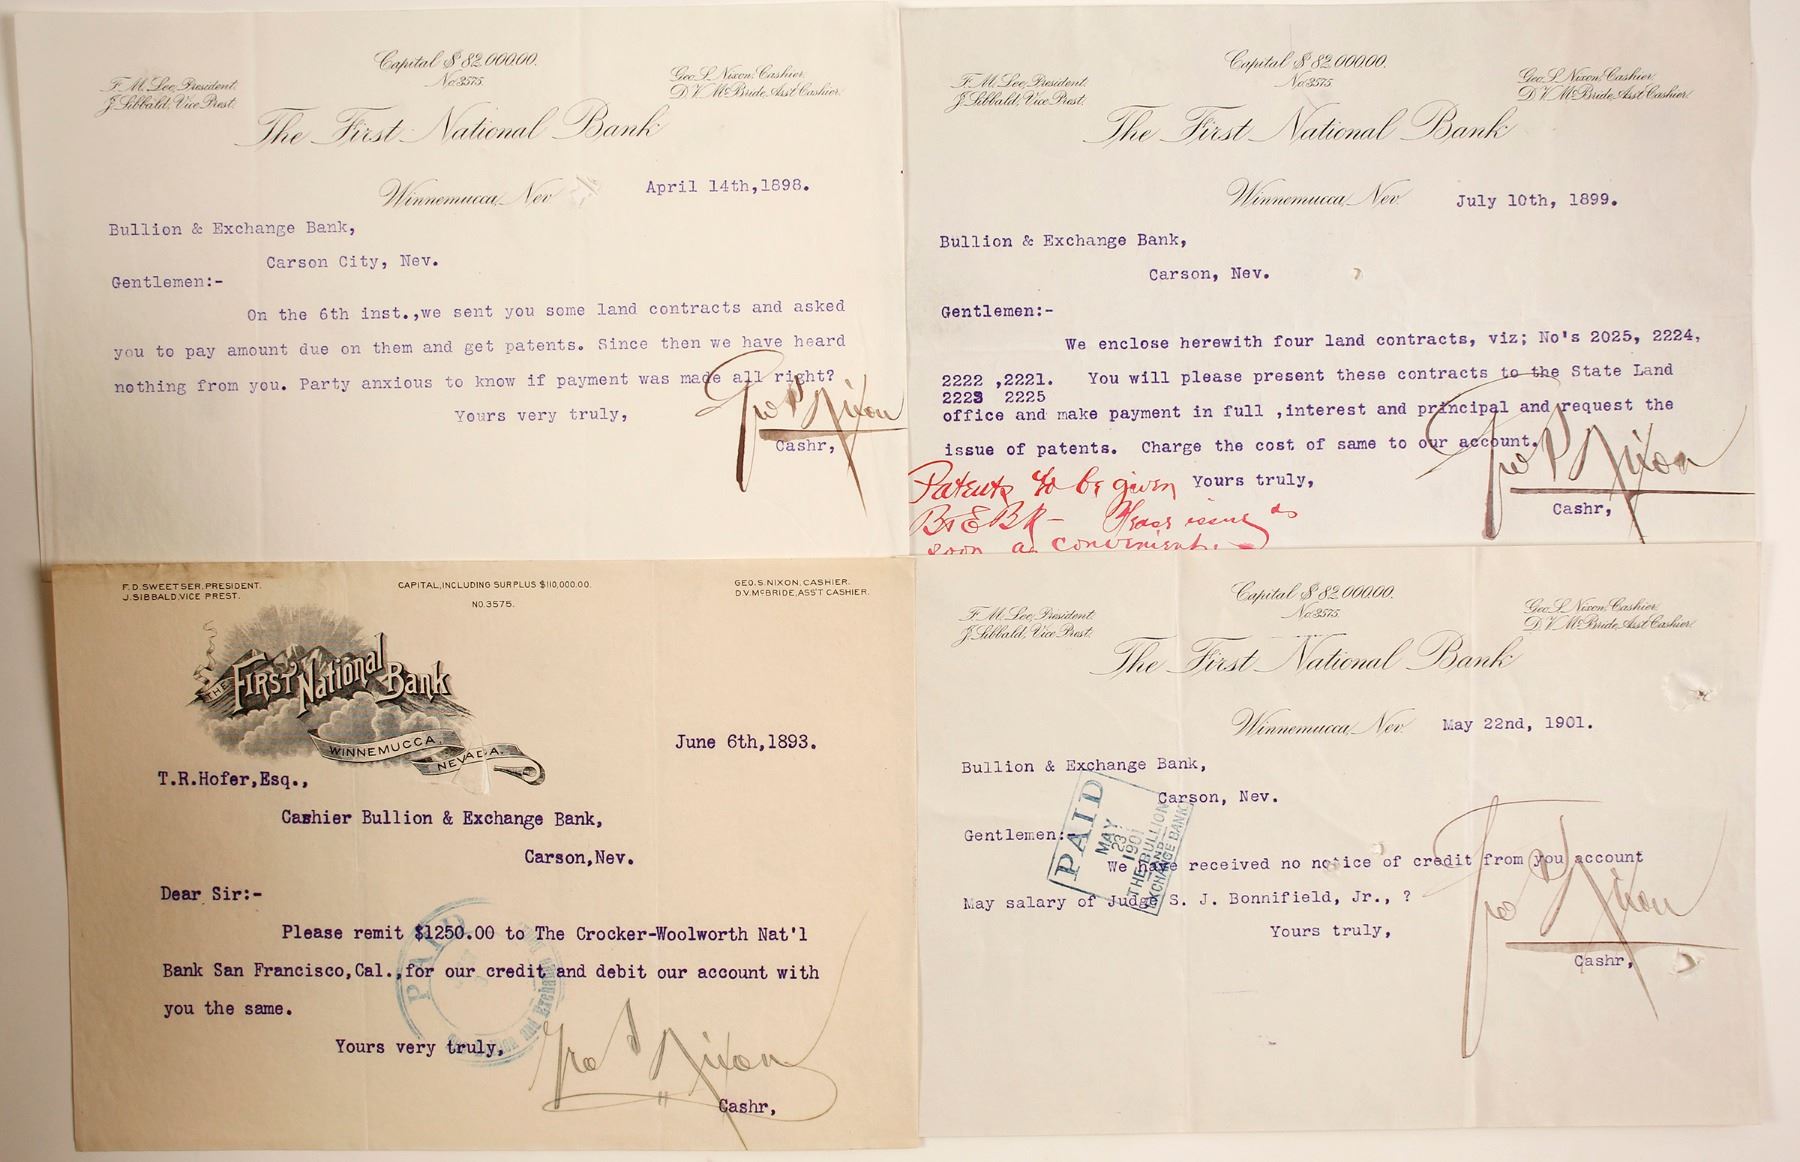 Capital $82,000.00.
No 3575.
F. M. Lee, President.
J. Sibbald, Vice Prest.
Geo. S. Nixon, Cashier.
D. V. McBride, Asst Cashier.
The First National Bank
Winnemucca, Nev
April 14th,1898.
Bullion & Exchange Bank,
Carson City, Nev.
Gentlemen:-
On the 6th inst.,we sent you some land contracts and asked
you to pay amount due on them and get patents. Since then we have heard
nothing from you. Party anxious to know if payment was made all right?
Yours very truly,
Geo S Nixon
Cashr,
Capital $82,000.00.
No 3575.
F. M. Lee, President.
J. Sibbald, Vice Prest.
Geo. S. Nixon, Cashier.
D. V. McBride, Asst Cashier.
The First National Bank
Winnemucca, Nev.
July 10th, 1899.
Bullion & Exchange Bank,
Carson, Nev.
Gentlemen:-
We enclose herewith four land contracts, viz; No's 2025, 2224,
2222 ,2221. You will please present these contracts to the State Land
2223 2225
office and make payment in full ,interest and principal and request the
issue of patents. Charge the cost of same to our account.
Yours truly,
Geo S Nixon
Cashr,
Patents to be given
B & E BK - Please issue as
soon as convenient.
F. D. SWEETSER, PRESIDENT.
J. SIBBALD, VICE PREST.
CAPITAL, INCLUDING SURPLUS $110,000.00.
NO. 3575.
GEO. S. NIXON, CASHIER.
D.V. McBRIDE, ASS'T CASHIER.
THE FIRST National Bank
WINNEMUCCA, NEVADA.
June 6th,1893.
T.R.Hofer,Esq.,
Cashier Bullion & Exchange Bank,
Carson,Nev.
Dear Sir:-
Please remit $1250.00 to The Crocker-Woolworth Nat'l
Bank San Francisco,Cal.,for our credit and debit our account with
you the same.
Yours very truly,
Geo S Nixon
Cashr,
PAID
Capital $82,000.00.
No 3575.
F. M. Lee, President.
J. Sibbald, Vice Prest.
Geo. S. Nixon, Cashier.
D. V. McBride, Asst Cashier.
The First National Bank
Winnemucca, Nev.
May 22nd, 1901.
Bullion & Exchange Bank,
Carson, Nev.
Gentlemen:-
We have received no notice of credit from you account
May salary of Judge S. J. Bonnifield, Jr., ?
Yours truly,
Geo S Nixon
Cashr,
PAID
MAY
23
1901
THE BULLION
AND
EXCHANGE BANK